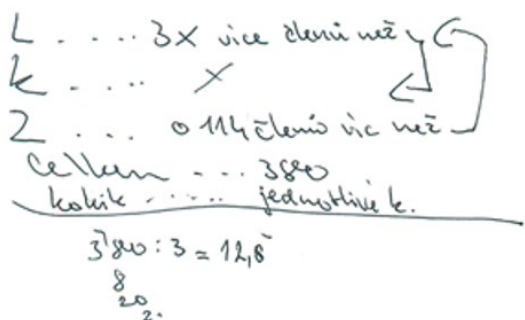 L . . . . 3x vice členů než
K . . . . x
Z . . . . o 114 členů víc než
Celkem . . . 380
kolik . . . . . jednotlivé k.
380 : 3 = 12,6
8
20
2.